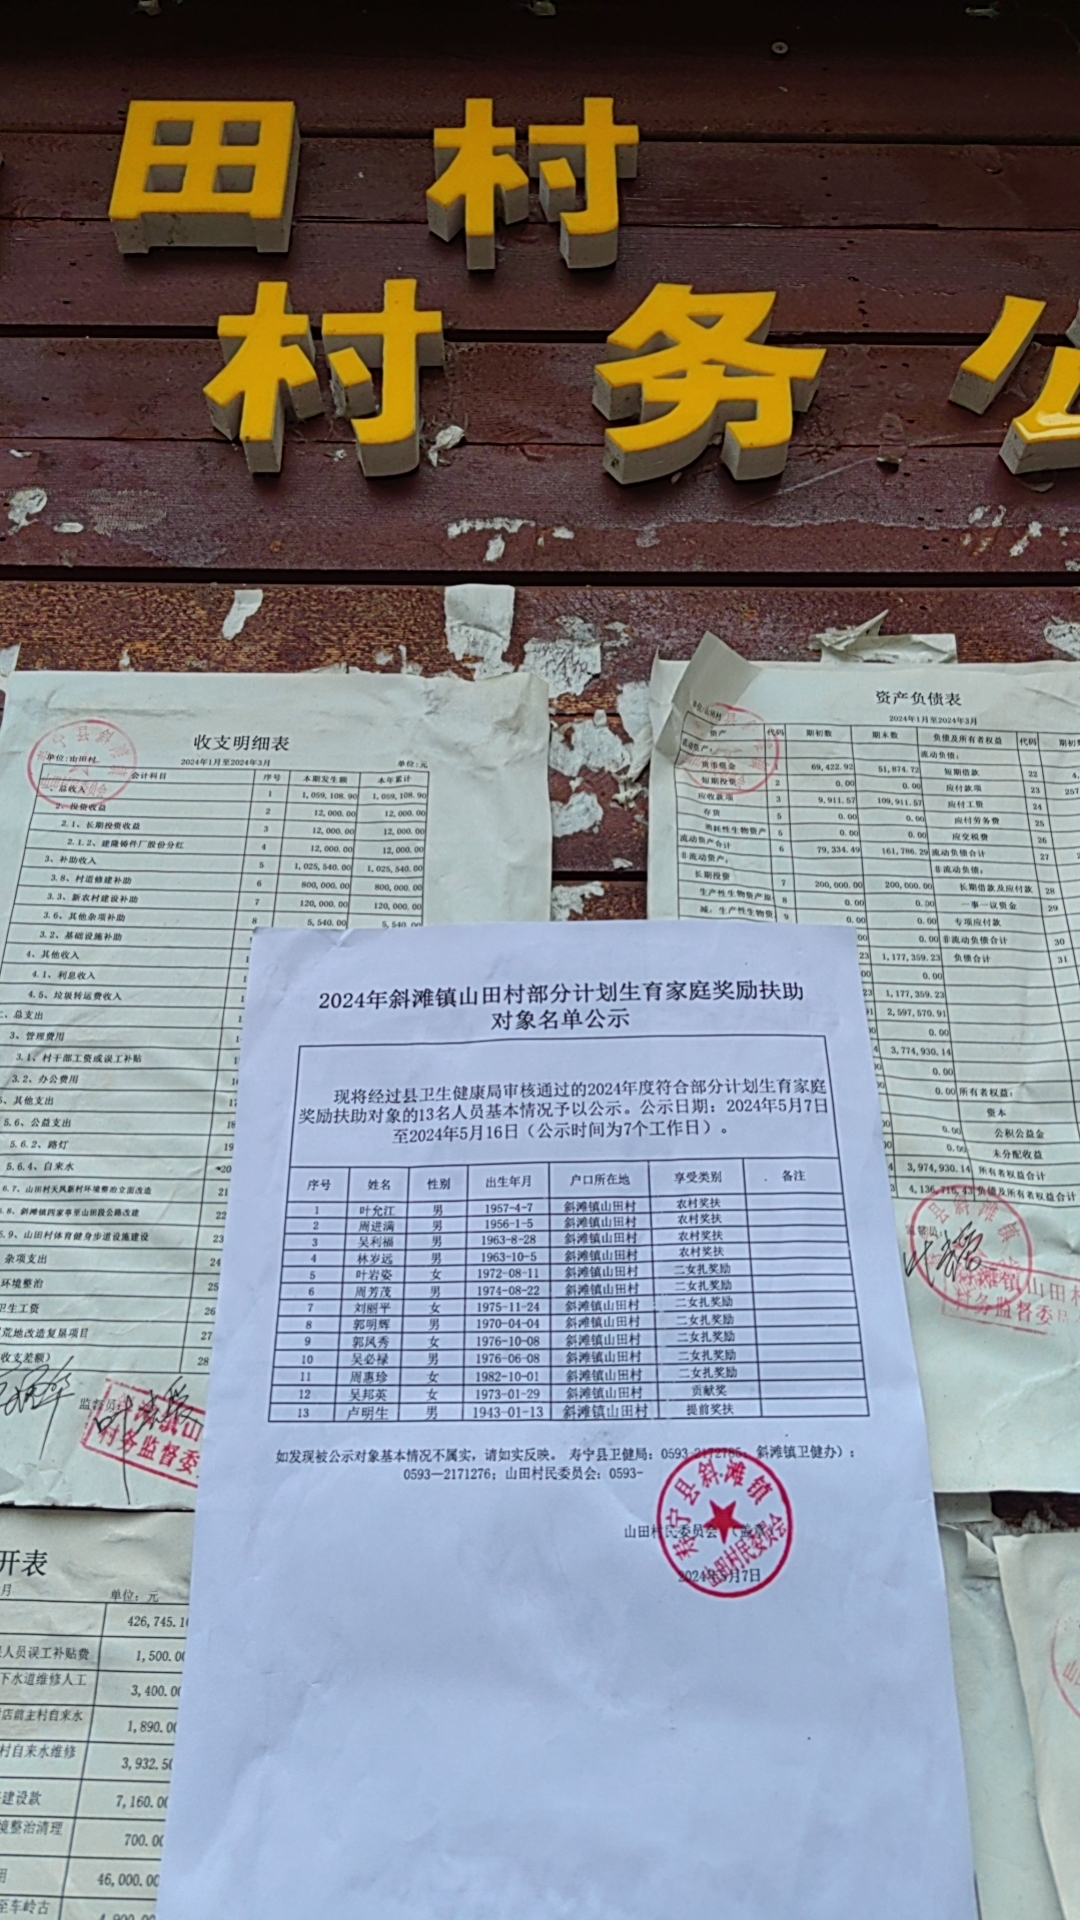 田村
村务公
收支明细表
单位:山田村
2024年1月至2024年3月
单位:元
会计科目 序号 本期发生额 本年累计
一、总收入 1 1,059,108.90 1,059,108.90
2、投资收益 2 12,000.00 12,000.00
2.1、长期投资收益 3 12,000.00 12,000.00
2.1.2、建隆铸件厂股份分红 4 12,000.00 12,000.00
3、补助收入 5 1,025,540.00 1,025,540.00
3.8、村道修建补助 6 800,000.00 800,000.00
3.3、新农村建设补助 7 120,000.00 120,000.00
3.6、其他杂项补助 8 5,540.00 5,540.00
3.2、基础设施补助
4、其他收入
4.1、利息收入
4.5、垃圾转运费收入
二、总支出
3、管理费用
3.1、村干部工资或误工补贴
3.2、办公费用
5、其他支出 17
5.6、公益支出 18
5.6.2、路灯 19
5.6.4、自来水 20
6.7、山田村天凤新村环境整治立面改造 21
5.8、斜滩镇四家亭至山田段公路改建 22
5.9、山田村体育健身步道设施建设 23
杂项支出 24
环境整治 25
卫生工资 26
荒地改造复垦项目 27
收支差额) 28
资产负债表
2024年1月至2024年3月
单位:山田村
资产 代码 期初数 期末数 负债及所有者权益 代码 期初
流动资产: 流动负债:
货币资金 69,422.92 51,874.72 短期借款 22
短期投资 2 0.00 0.00 应付款项 23 257
应收款项 3 9,911.57 109,911.57 应付工资 24
存货 5 0.00 0.00 应付劳务费 25
消耗性生物资产 5 0.00 0.00 应交税费 26
流动资产合计 6 79,334.49 161,786.29 流动负债合计 27
非流动资产: 非流动负债:
长期投资 7 200,000.00 200,000.00 长期借款及应付款 28
生产性生物资产原 8 0.00 0.00 一事一议资金 29
减:生产性生物资 9 0.00 0.00 专项应付款
0.00 非流动负债合计 30
1,177,359.23 负债合计 31
0.00
1,177,359.23
2,597,570.91
0.00
3,774,930.14
0.00 所有者权益:
0.00 资本
0.00 公积公益金
0.00 未分配收益
3,974,930.14 所有者权益合计
4,136,716.43 负债及所有者权益合计
2024年斜滩镇山田村部分计划生育家庭奖励扶助
对象名单公示
现将经过县卫生健康局审核通过的2024年度符合部分计划生育家庭
奖励扶助对象的13名人员基本情况予以公示。公示日期：2024年5月7日
至2024年5月16日（公示时间为7个工作日）。
序号 姓名 性别 出生年月 户口所在地 享受类别 备注
1 叶允江 男 1957-4-7 斜滩镇山田村 农村奖扶
2 周进满 男 1956-1-5 斜滩镇山田村 农村奖扶
3 吴利福 男 1963-8-28 斜滩镇山田村 农村奖扶
4 林岁远 男 1963-10-5 斜滩镇山田村 农村奖扶
5 叶岩姿 女 1972-08-11 斜滩镇山田村 二女扎奖励
6 周芳茂 男 1974-08-22 斜滩镇山田村 二女扎奖励
7 刘丽平 女 1975-11-24 斜滩镇山田村 二女扎奖励
8 郭明辉 男 1970-04-04 斜滩镇山田村 二女扎奖励
9 郭凤秀 女 1976-10-08 斜滩镇山田村 二女扎奖励
10 吴必禄 男 1976-06-08 斜滩镇山田村 二女扎奖励
11 周惠珍 女 1982-10-01 斜滩镇山田村 二女扎奖励
12 吴邦英 女 1973-01-29 斜滩镇山田村 贡献奖
13 卢明生 男 1943-01-13 斜滩镇山田村 提前奖扶
如发现被公示对象基本情况不属实，请如实反映。 寿宁县卫健局：0593-2172785；斜滩镇卫健办）：
0593—2171276；山田村民委员会：0593-
山田村民委员会（盖章）
2024年5月7日
寿宁县斜滩镇
山田村民委员会
监督员:
斜滩镇山田村
村务监督委员
监督员:
村务监督委
开表
月 单位: 元
426,745.1
人员误工补贴费 1,500.00
下水道维修人工 3,400.00
店前主村自来水 1,890.00
村自来水维修 3,932.50
建设款 7,160.00
境整治清理 700.00
用 46,000.00
至车岭古 4,900.00